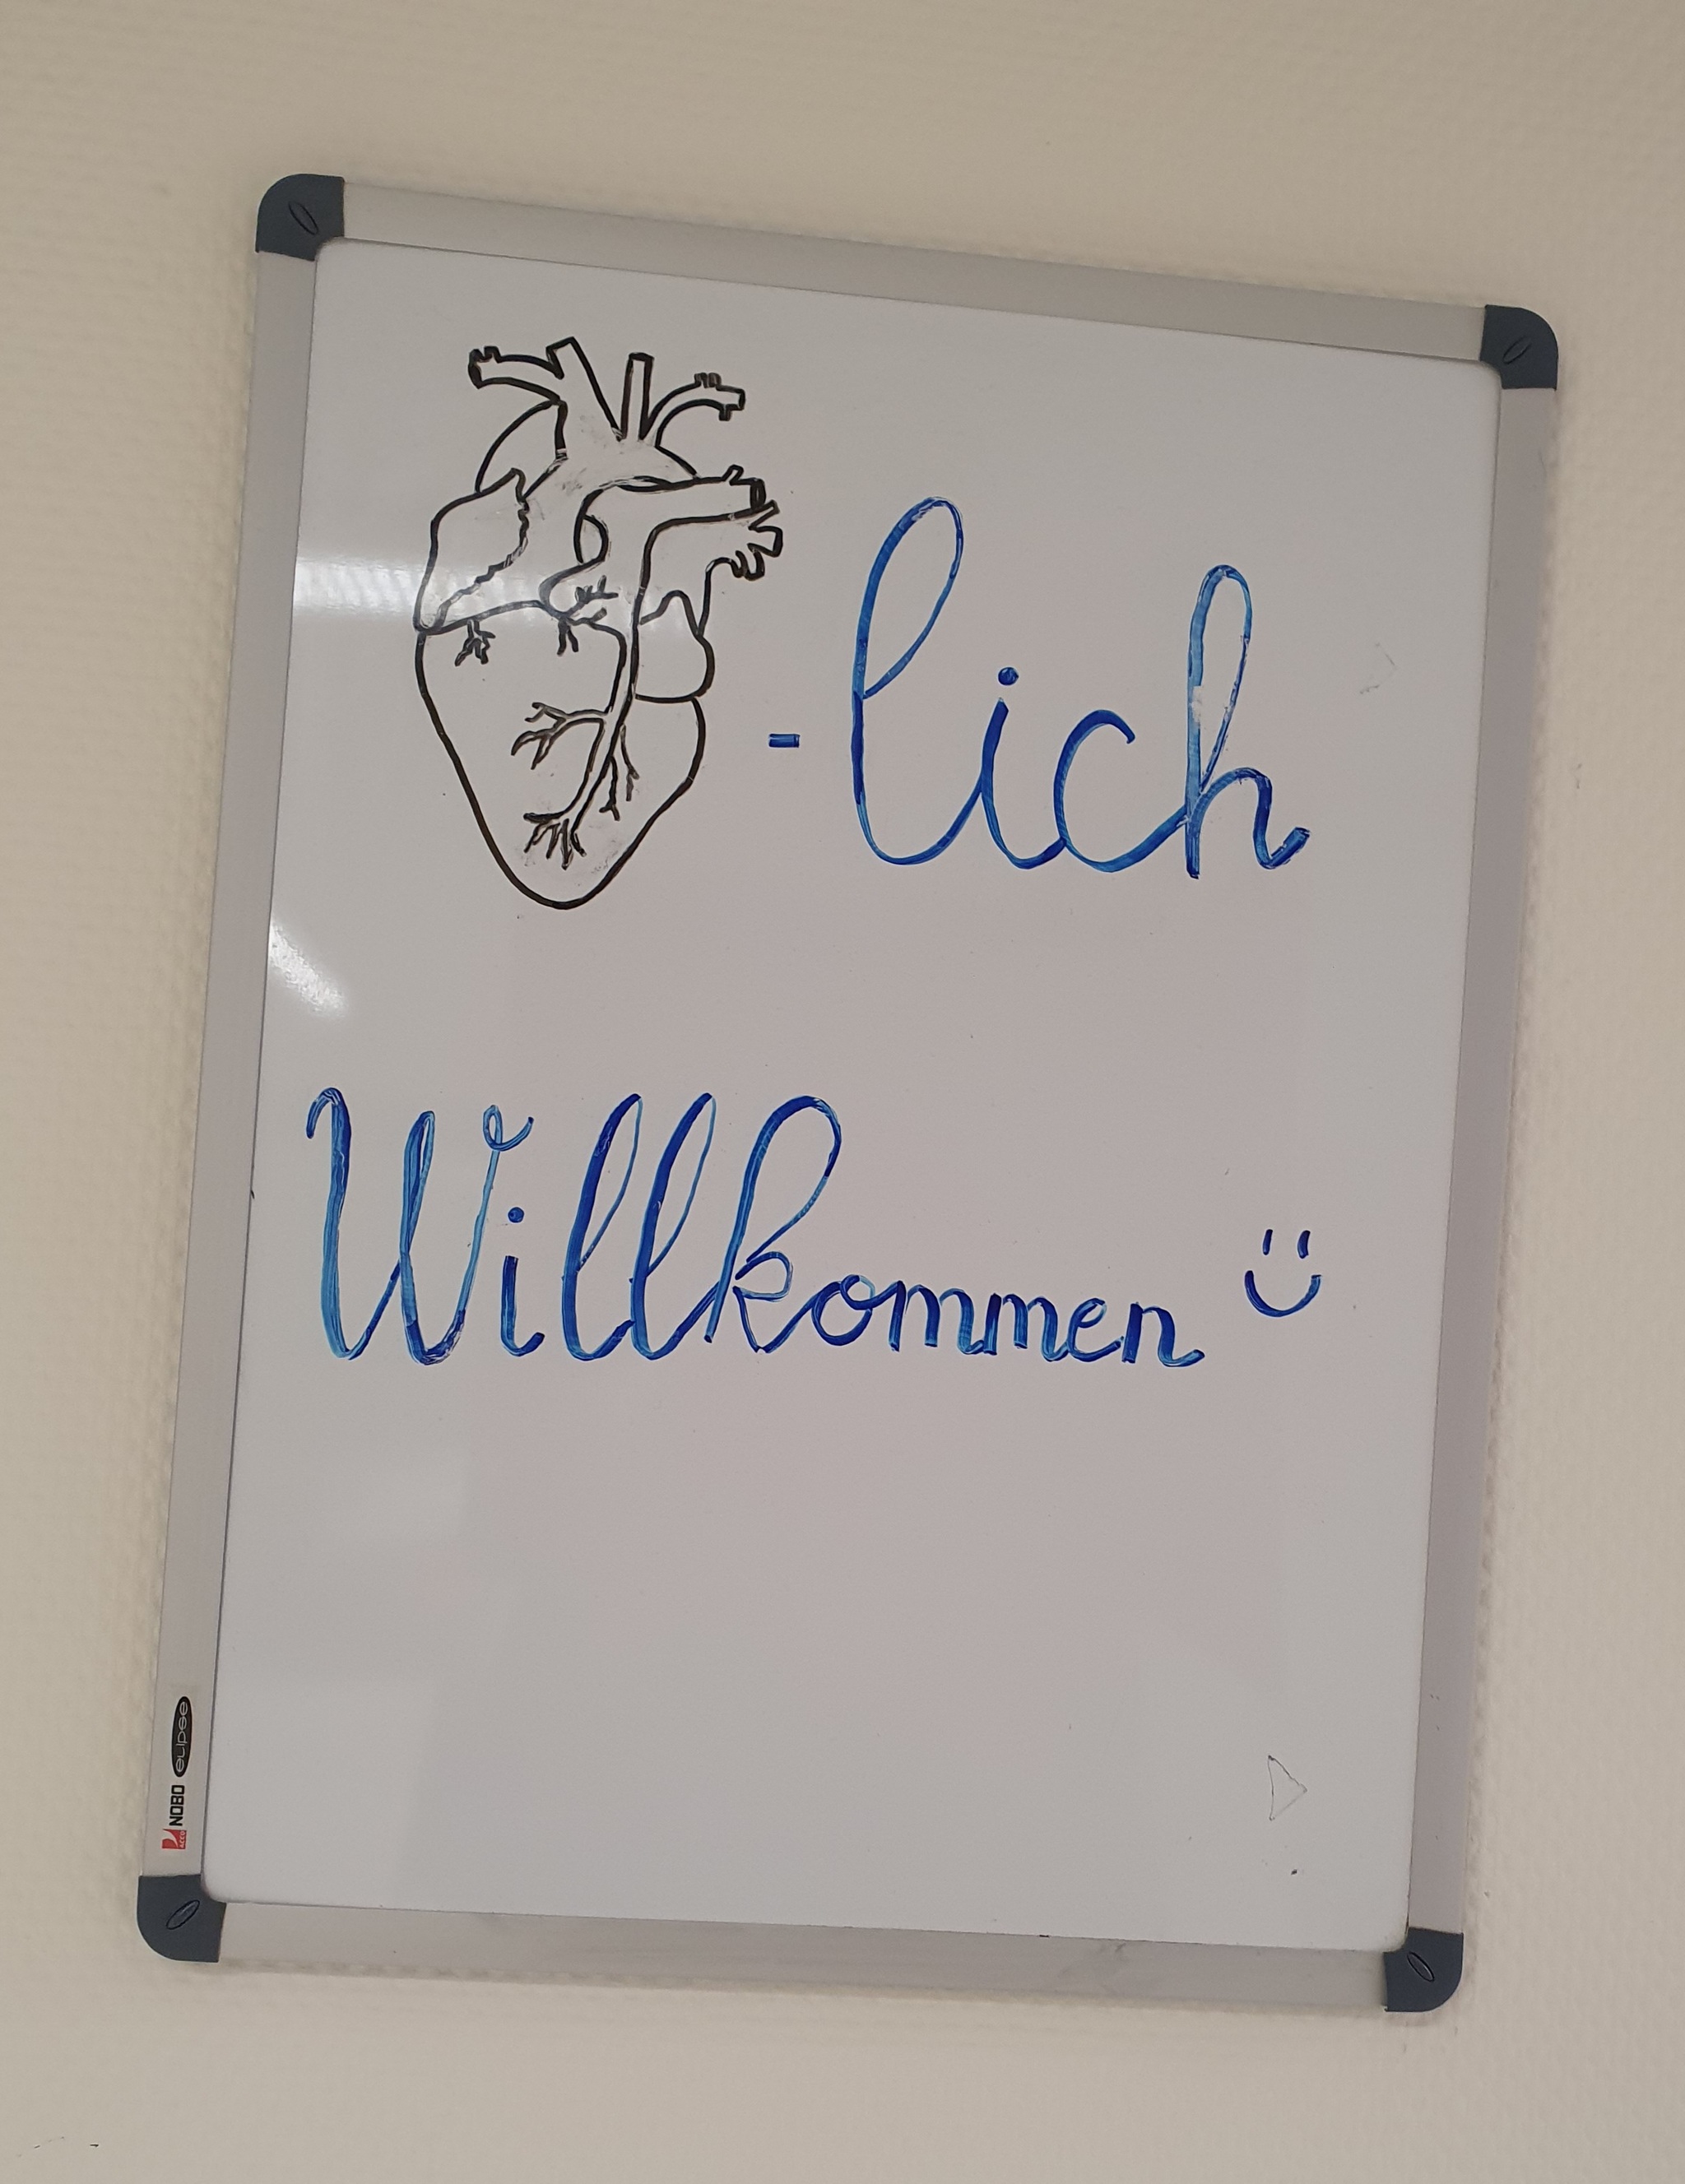 -lich
Willkommen
ACCO NOBO elipse